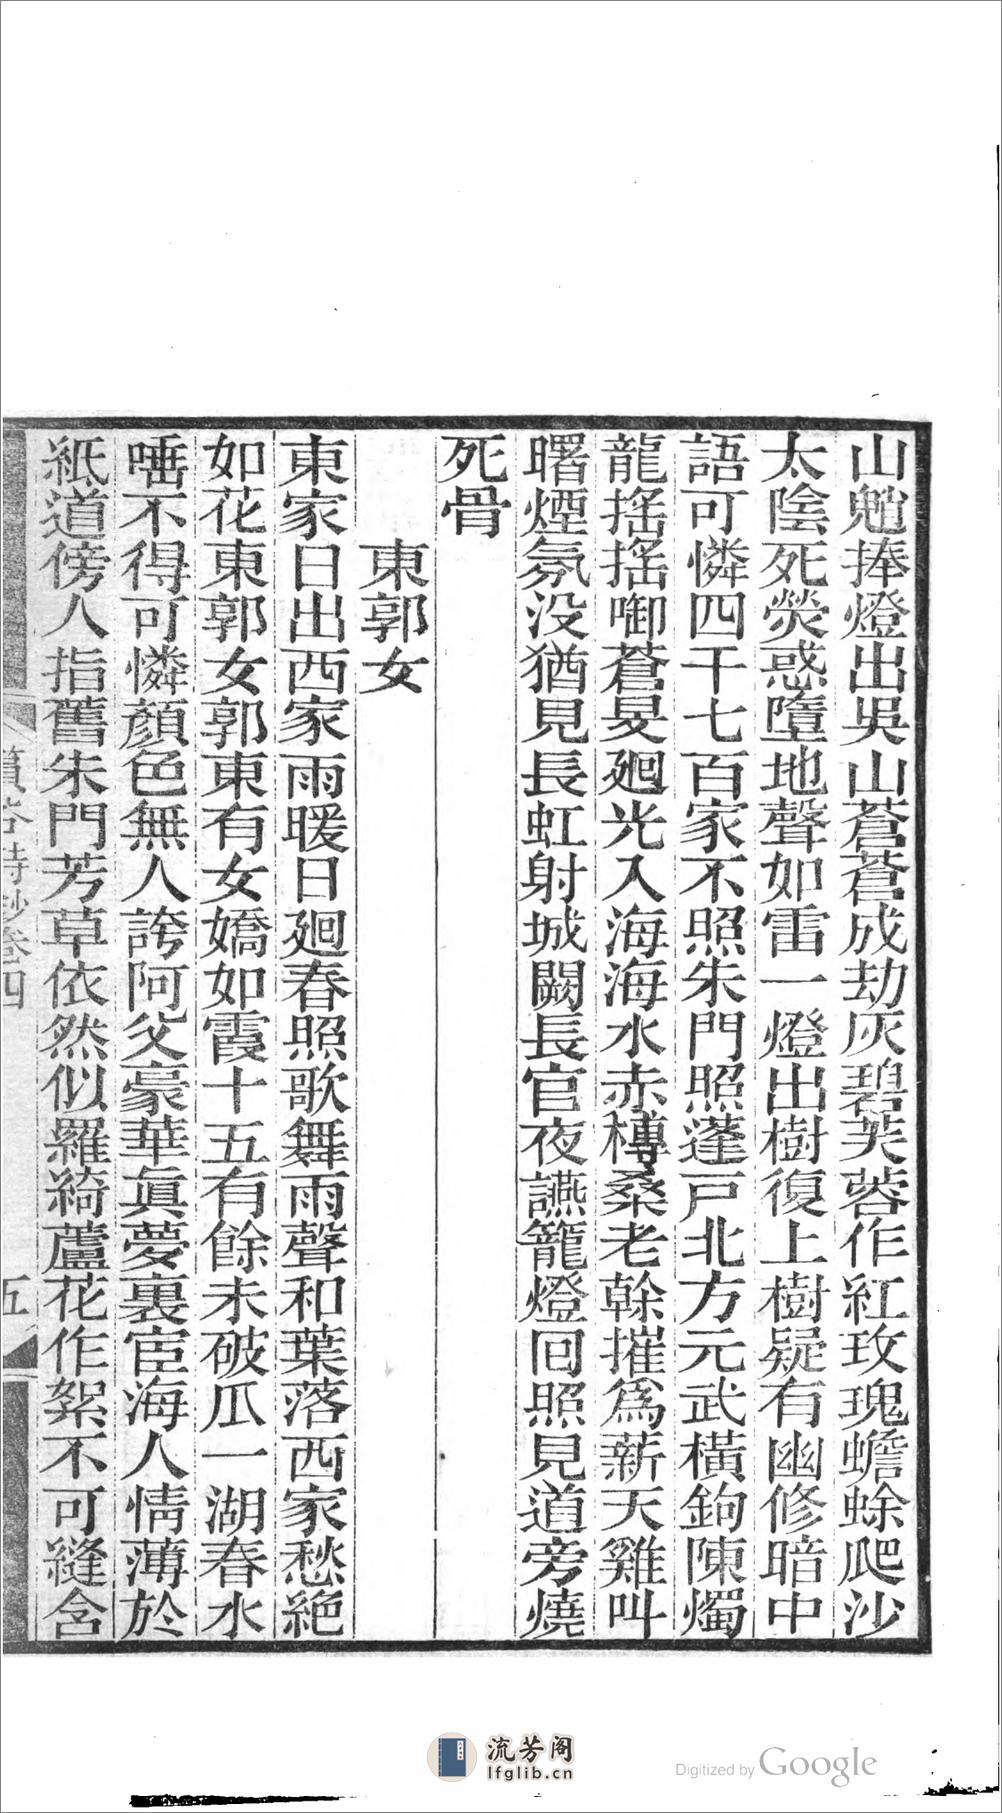 山魈捧燈出吳山蒼蒼成劫灰碧芙蓉作紅玫瑰蟾蜍爬沙
太陰死熒惑墮地聲如雷一燈出樹復上樹疑有幽修暗中
語可憐四千七百家不照朱門照蓬戸北方元武橫鉤陳燭
龍搖搖啣蒼旻廻光入海海水赤榑桑老榦摧爲薪天雞叫
曙煙氛没猶見長虹射城闕長官夜讌籠燈回照見道旁燒
死骨
東郭女
東家日出西家雨暖日廻春照歌舞雨聲和葉落西家愁絕
如花東郭女郭東有女嬌如霞十五有餘未破瓜一湖春水
唾不得可憐顏色無人誇阿父豪華眞夢裏宦海人情薄於
紙道傍人指舊朱門芳草依然似羅綺蘆花作絮不可縫含
詩鈔卷四
五
流芳阁
lfglib.cn
Digitized by Google